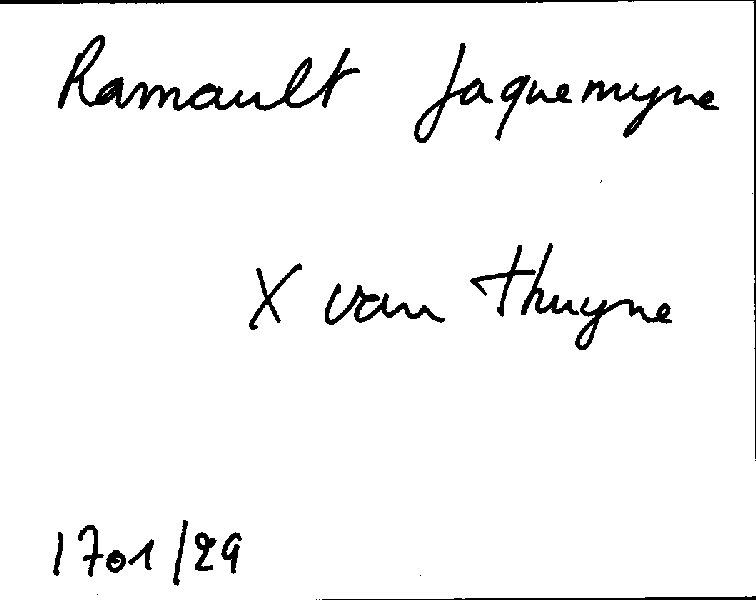 Ramault Jaquemyne
X van Thuyne
1701/29